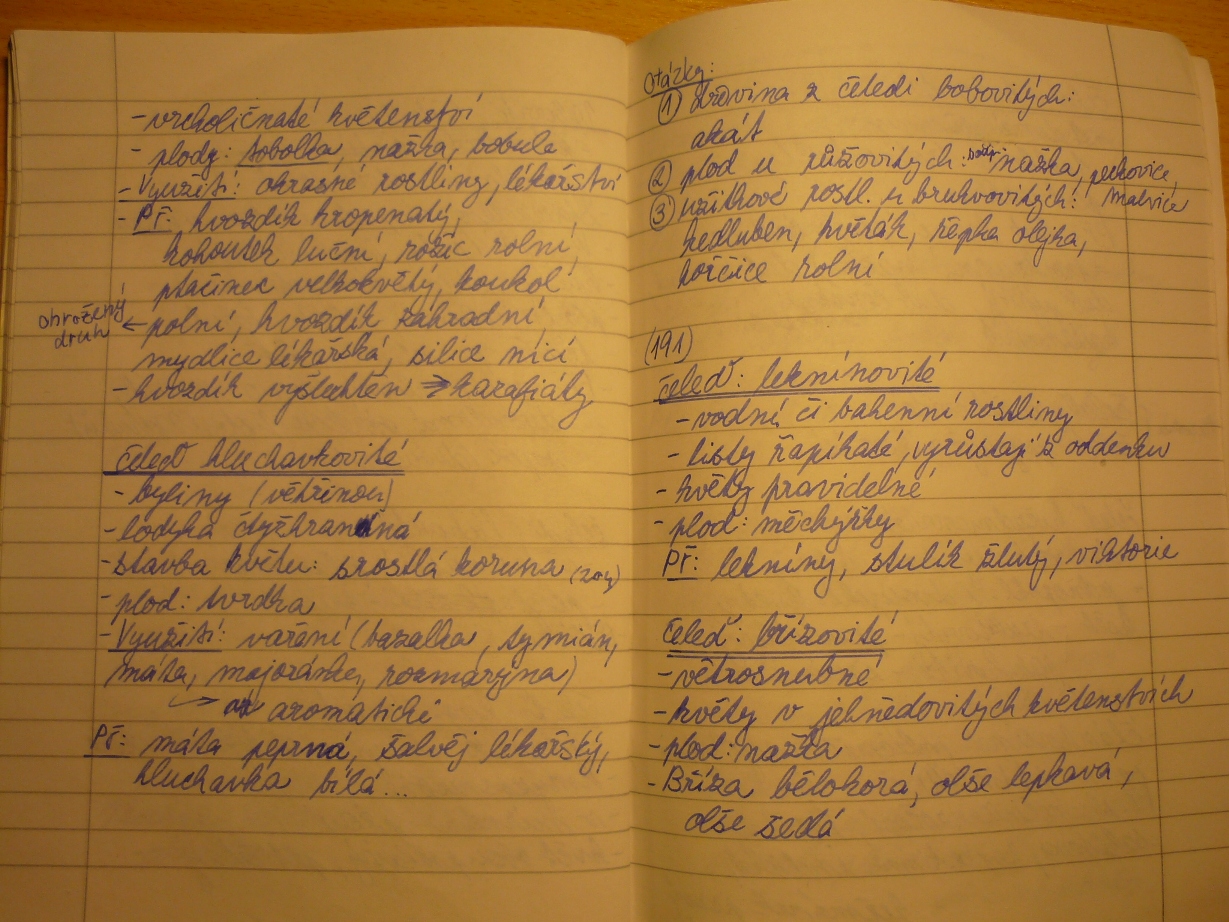 - vrcholičnaté květenství
- plody: tobolka, nažka, bobule
- Využití: okrasné rostliny, lékařství
- Př: hvozdík kropenatý,
kohoutek luční, rožec rolní,
ptačinec velkokvětý, koukol
ohrožený druh ← polní, hvozdík zahradní
mydlice lékařská, silice nící
- hvozdík vyšlechtěn ⇒ karafiáty
čeleď hluchavkovité
- byliny (většinou)
- lodyha čtyřhranná
- stavba květu: srostlá koruna (
- plod: tvrdka
- Využití: vaření (bazalka, tymián,
máta, majoránka, rozmarýna)
→ aromatické
Př: máta peprná, šalvěj lékařský,
hluchavka bílá...
Otázky:
1) dřevina z čeledi bobovitých:
akát
2) plod u růžovitých: nažka, peckovice,
malvice
3) užitkové rostl. u brukvovitých:
kedluben, květák, řepka olejka,
hořčice rolní
(191)
čeleď: leknínovité
- vodní či bahenní rostliny
- listy řapíkaté, vyrůstají z oddenku
- květy pravidelné
- plod: měchýřky
Př: lekníny, stulík žlutý, viktorie
čeleď: břízovité
- větrosnubné
- květy v jehnědovitých květenstvích
- plod: nažka
- Bříza bělokorá, olše lepkavá,
olše šedá